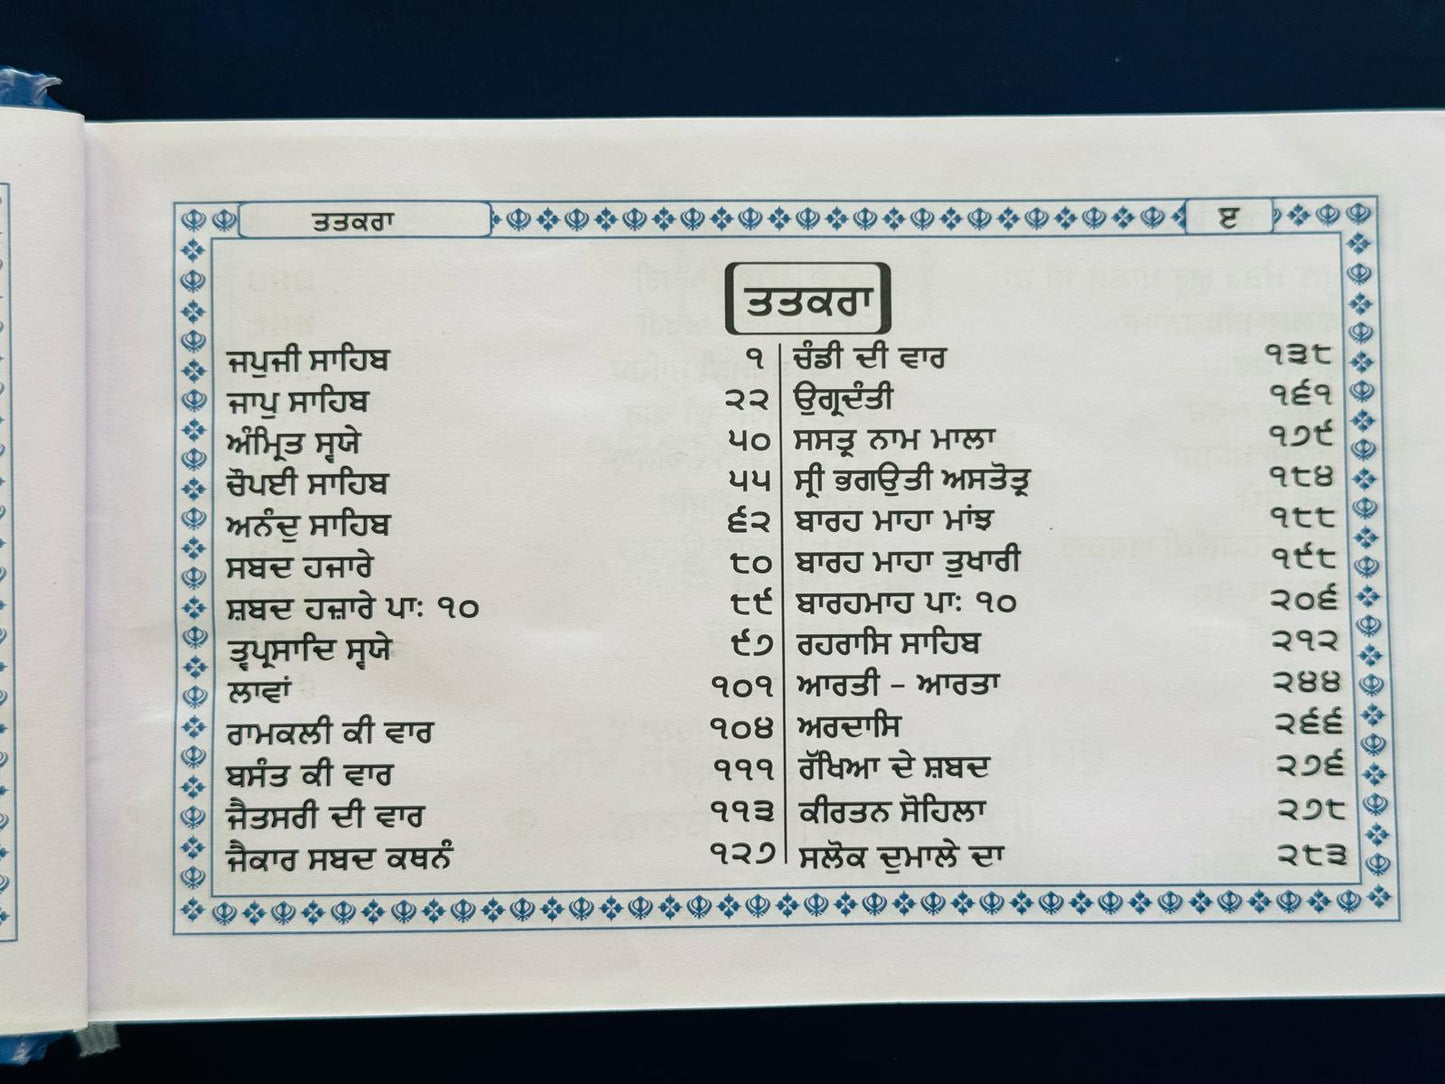 ਤਤਕਰਾ
ੲ
ਤਤਕਰਾ
ਜਪੁਜੀ ਸਾਹਿਬ ੧
ਜਾਪੁ ਸਾਹਿਬ ੨੨
ਅੰਮ੍ਰਿਤ ਸ੍ਵਯੇ ੫੦
ਚੌਪਈ ਸਾਹਿਬ ੫੫
ਅਨੰਦੁ ਸਾਹਿਬ ੬੨
ਸਬਦ ਹਜਾਰੇ ੮੦
ਸ਼ਬਦ ਹਜ਼ਾਰੇ ਪਾ: ੧੦ ੮੯
ਤ੍ਵਪ੍ਰਸਾਦਿ ਸ੍ਵਯੇ ੯੭
ਲਾਵਾਂ ੧੦੧
ਰਾਮਕਲੀ ਕੀ ਵਾਰ ੧੦੪
ਬਸੰਤ ਕੀ ਵਾਰ ੧੧੧
ਜੈਤਸਰੀ ਦੀ ਵਾਰ ੧੧੩
ਜੈਕਾਰ ਸਬਦ ਕਥਨੰ ੧੨੭
ਚੰਡੀ ਦੀ ਵਾਰ ੧੩੮
ਉਗ੍ਰਦੰਤੀ ੧੬੧
ਸਸਤ੍ਰ ਨਾਮ ਮਾਲਾ ੧੭੯
ਸ੍ਰੀ ਭਗਉਤੀ ਅਸਤੋਤ੍ਰ ੧੮੪
ਬਾਰਹ ਮਾਹਾ ਮਾਂਝ ੧੮੮
ਬਾਰਹ ਮਾਹਾ ਤੁਖਾਰੀ ੧੯੮
ਬਾਰਹਮਾਹ ਪਾ: ੧੦ ੨੦੬
ਰਹਰਾਸਿ ਸਾਹਿਬ ੨੧੨
ਆਰਤੀ - ਆਰਤਾ ੨੪੪
ਅਰਦਾਸਿ ੨੬੬
ਰੱਖਿਆ ਦੇ ਸ਼ਬਦ ੨੭੬
ਕੀਰਤਨ ਸੋਹਿਲਾ ੨੭੮
ਸਲੋਕ ਦੁਮਾਲੇ ਦਾ ੨੮੩